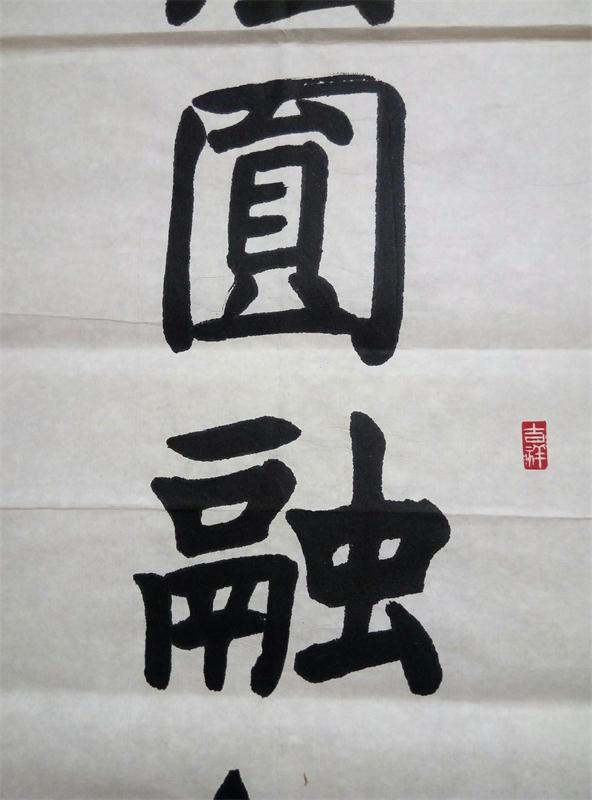 圓
融
吉祥